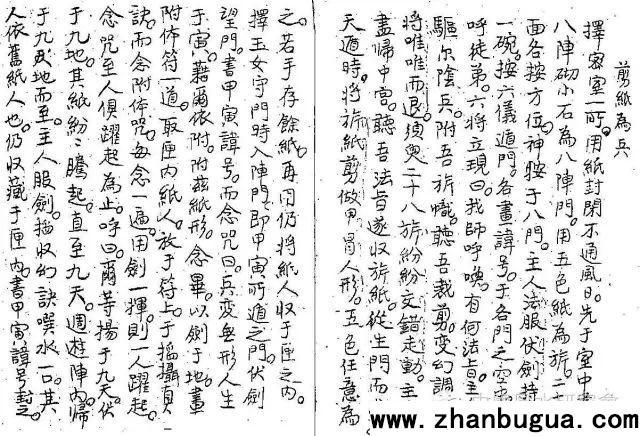 剪紙為兵
擇密室一所。用紙封閉不通風日。先于室中
八陣砌小石為八陣門。用五色紙為旂。二
面各按方位。神按于八門。主人法服仗劍持
一碗。按六儀遁門。各畫諱号。于各門之空中
呼徒弟。六將立現曰。我師呼喚。有何法旨。主
驅尔陰兵。附吾旂幟。聽吾裁剪。變幻調
將唯唯而退。須臾二十八旂紛紛交錯走動。主
盡歸中宮。聽吾法旨。遂收旂紙。從生門而
天遁時。將旂紙剪做甲胄人形。五色任意為
之。若手存餘紙。再用仍將紙人收于匣之內。
擇玉女守門時。入陣門。即甲寅所遁之門。伏劍
望門。書甲寅諱号。而念咒曰。兵變無形。人生
于寅。藉爾依附。附茲紙形。念畢。以劍于地畫
附佈符一道。取匣內紙人。放于符上。于搖攝真
訣。而念附佈咒。每念一遍。用劍一揮。則一人躍起。
念咒至人俱躍起為止。呼曰。爾等揚于九天。伏
于九地。其紙紛紛騰起。直至九天。週遊陣內。歸
于九地而至。主人服劍。搯收幻訣。噀水一口。其
人依舊紙人也。仍收藏于匣內。書甲寅諱号封之
www.zhanbugua.com